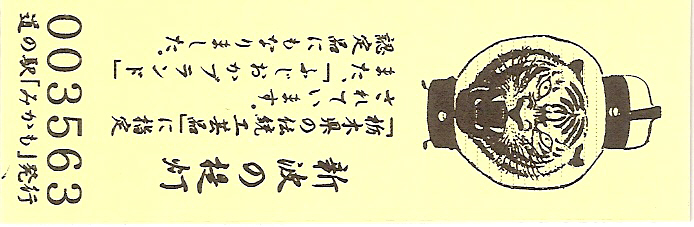 新波の提灯
「栃木県の伝統工芸品」に指定
されています。
また、「ふじおかブランド」
認定品にもなりました。
003563
道の駅「みかも」発行